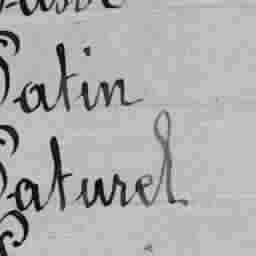 Patin
Paturel